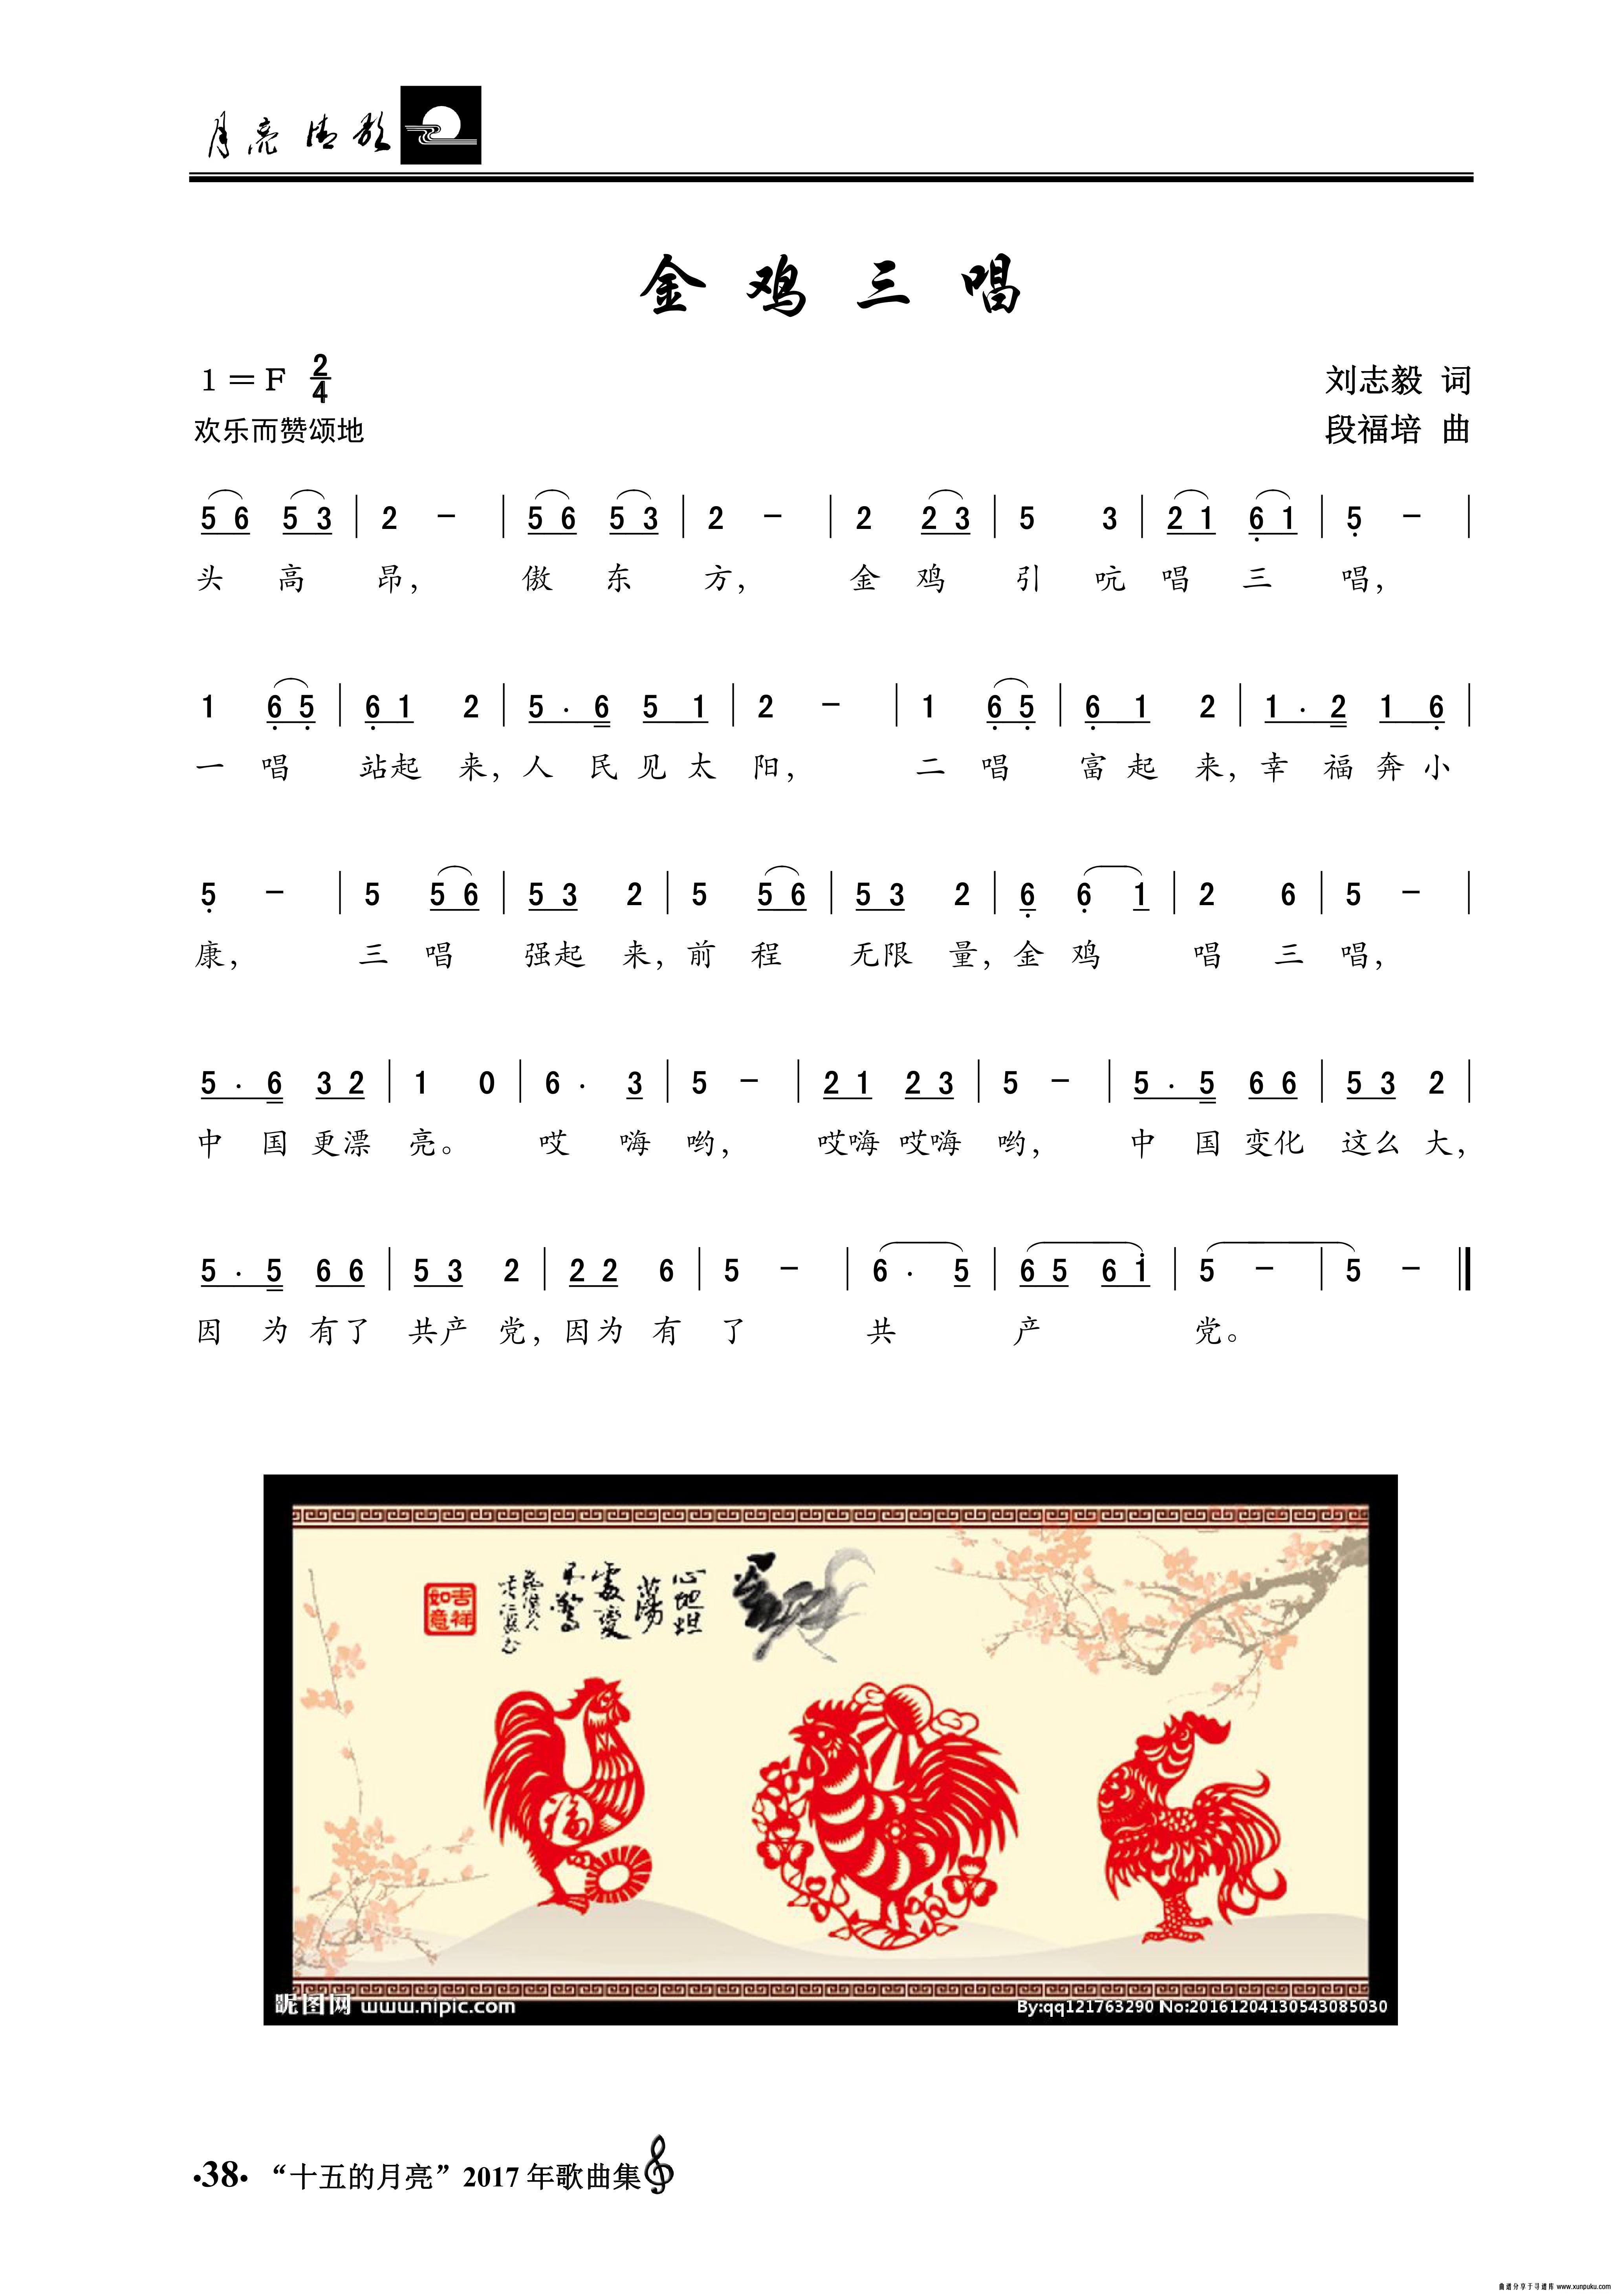 月亮清歌
金鸡三唱
1＝F 2/4
刘志毅 词
欢乐而赞颂地
段福培 曲
5 6 5 3 | 2 － | 5 6 5 3 | 2 － | 2 2 3 | 5 3 | 2 1 6̣ 1 | 5̣ － |
头 高 昂， 傲 东 方， 金 鸡 引 吭 唱 三 唱，
1 6̣ 5̣ | 6̣ 1 2 | 5 · 6 5 1 | 2 － | 1 6̣ 5̣ | 6̣ 1 2 | 1 · 2 1 6̣ |
一 唱 站起 来，人 民 见 太 阳， 二 唱 富 起 来，幸 福 奔 小
5̣ － | 5 5 6 | 5 3 2 | 5 5 6 | 5 3 2 | 6̣ 6̣ 1 | 2 6 | 5 － |
康， 三 唱 强起 来，前 程 无限 量，金 鸡 唱 三 唱，
5 · 6 3 2 | 1 0 | 6 · 3 | 5 － | 2 1 2 3 | 5 － | 5 · 5 6 6 | 5 3 2 |
中 国 更漂 亮。 哎 嗨 哟， 哎嗨 哎嗨 哟， 中 国 变化 这么 大，
5 · 5 6 6 | 5 3 2 | 2 2 6 | 5 － | 6 · 5 | 6 5 6 1̇ | 5 － | 5 － ‖
因 为 有了 共产 党，因为 有 了 共 产 党。
心地坦
荡
处变
不惊
吉祥
如意
福
昵图网 www.nipic.com
By:qq121763290 No:20161204130543085030
·38· “十五的月亮”2017 年歌曲集
曲谱分享于寻谱库 www.xunpuku.com